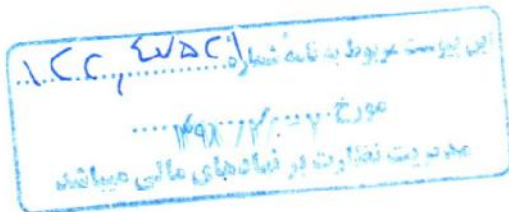 این پیوست مربوط به نامه شماره ۱۲۲/۴۷۵۲۱
مورخ
مدیریت نظارت بر نهادهای مالی میباشد